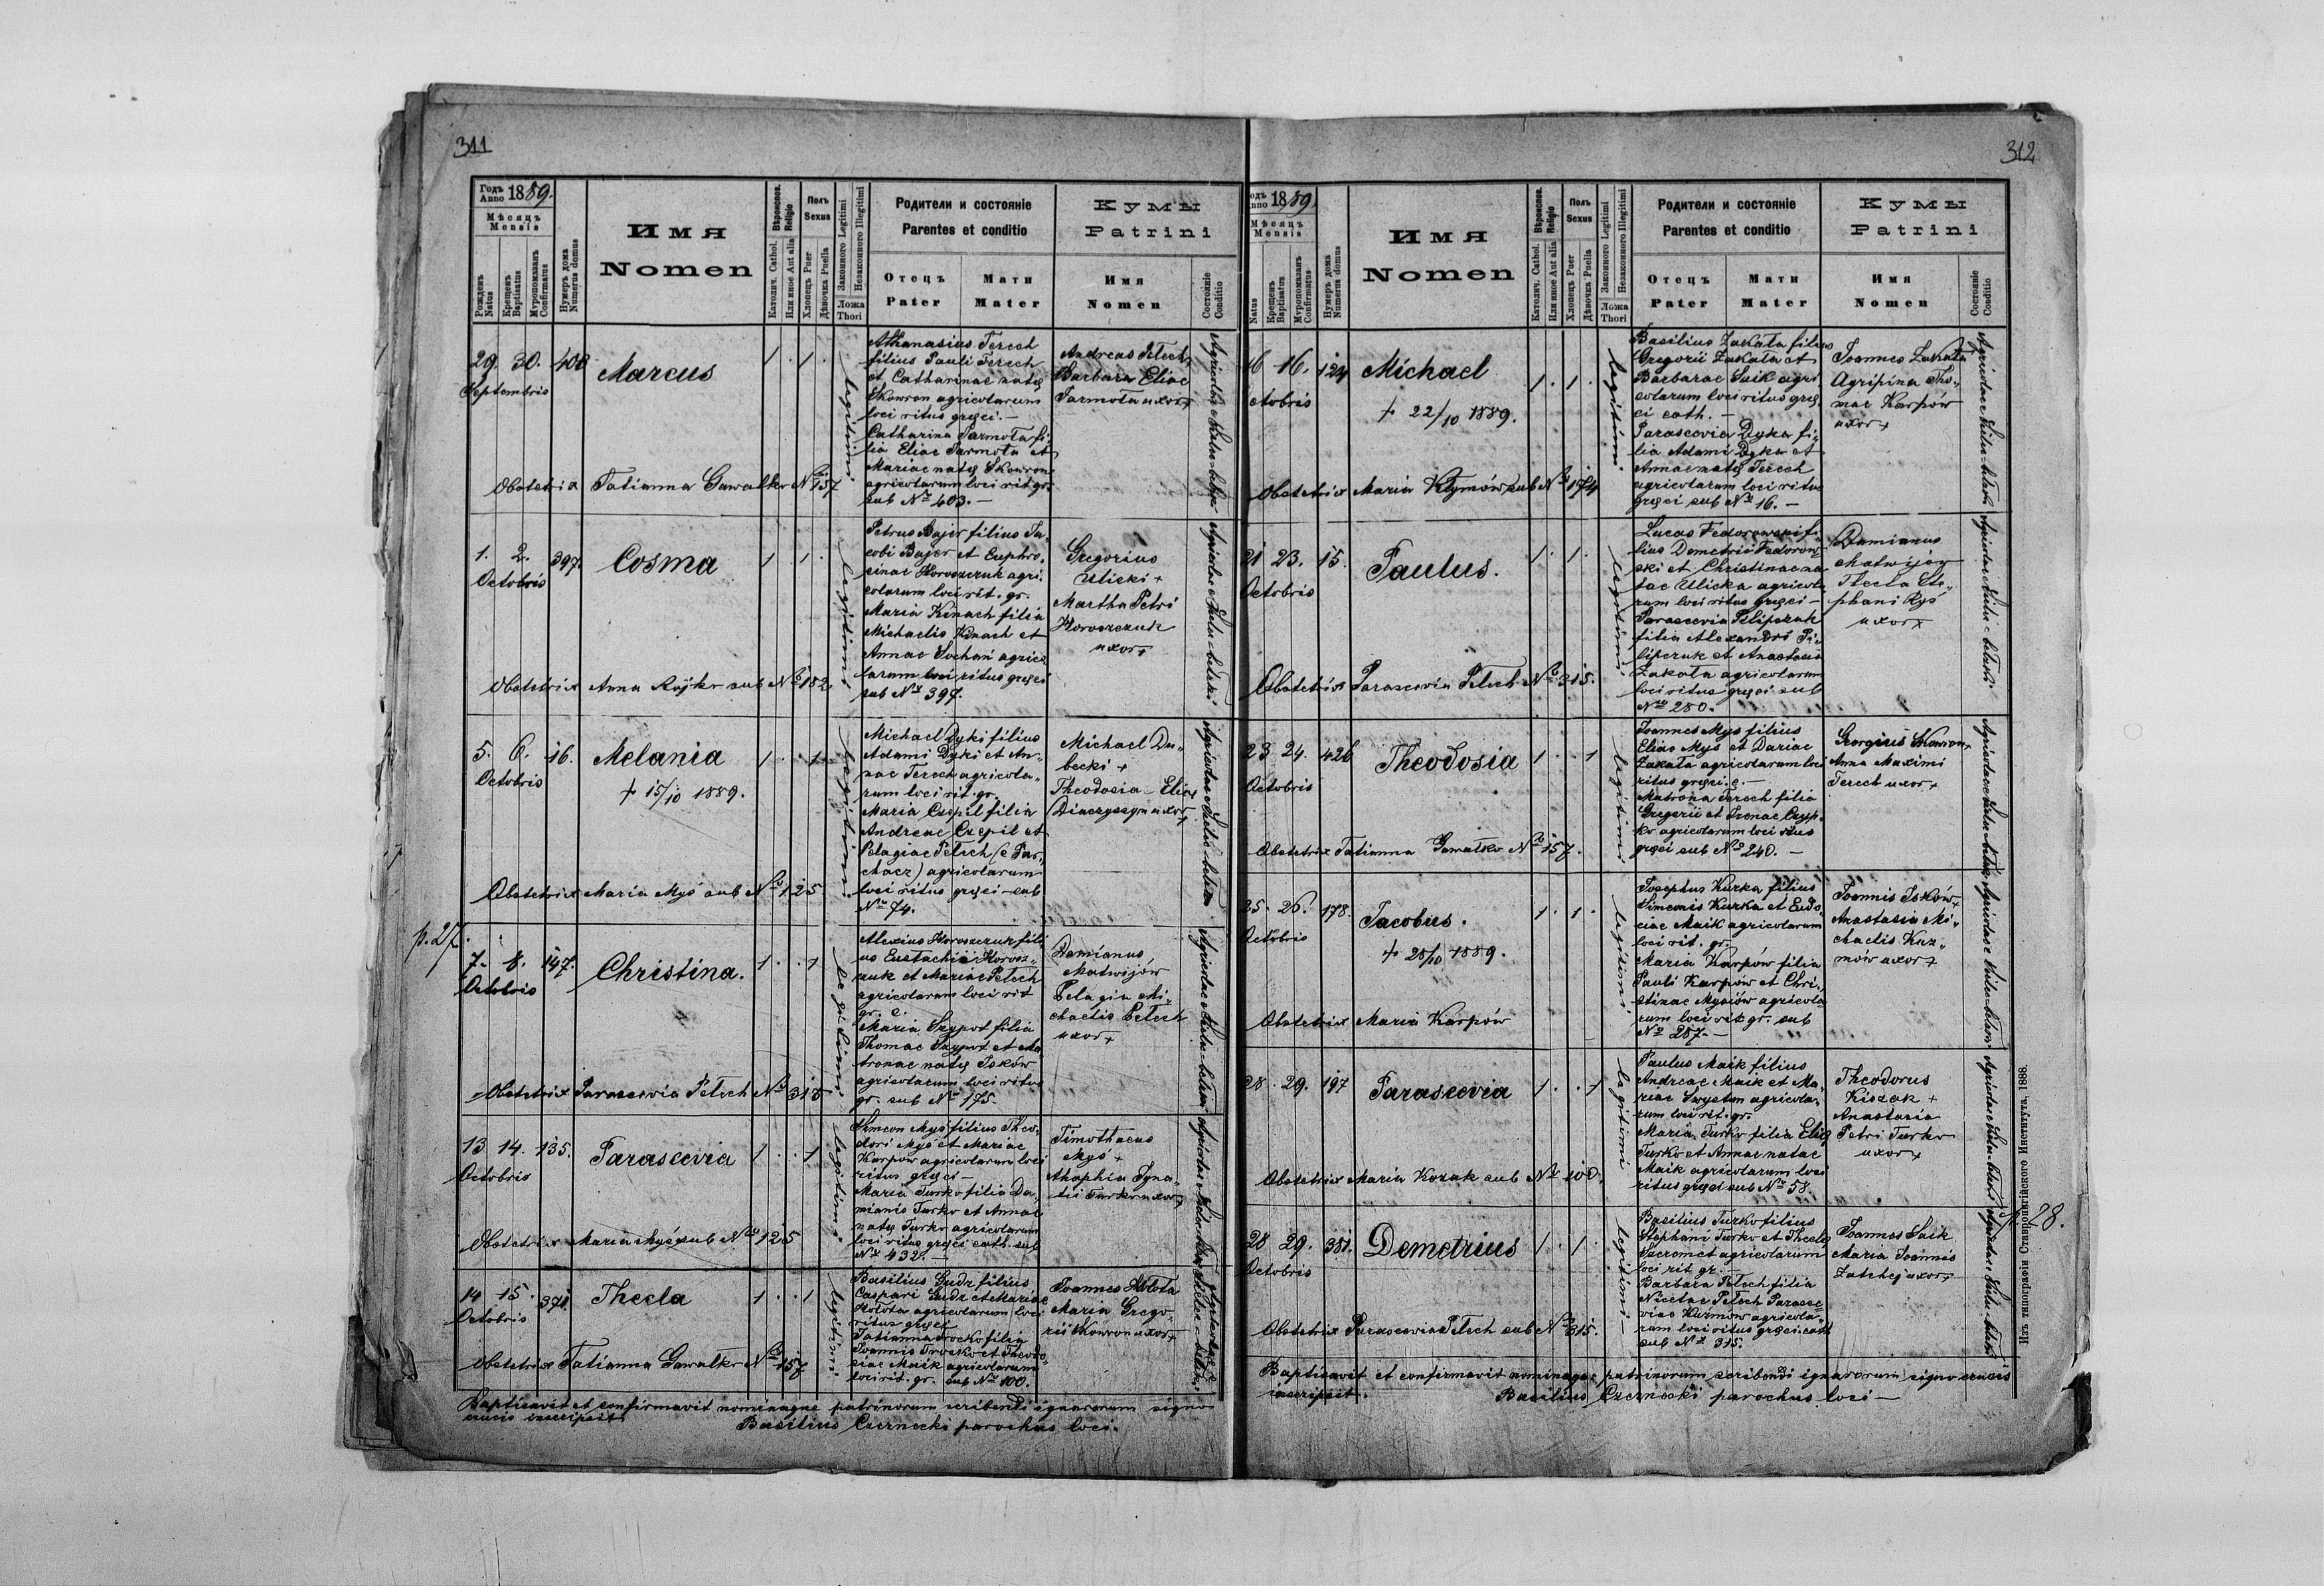 311
Годъ Anno 1889.
Мѣсяцъ
Mensis
Рожденъ Natus
Крещенъ Baptisatus
Мѵропомазанъ Confirmatus
Нумеръ дома Numerus domus
Имя
Nomen
Вѣроиспов. Religio
Католич. Cathol.
Или иное Aut alia
Полъ
Sexus
Хлопецъ Puer
Дѣвочка Puella
Законного Legitimi
Незаконного Illegitimi
Ложа
Thori
Родители и состояніе
Parentes et conditio
Отецъ
Pater
Мати
Mater
Кумы
Patrini
Имя
Nomen
Состояніе
Conditio
29. 30. 403
Septembris
Marcus
1 . 1 .
legitimi
Athanasius Terech
filius Pauli Terech
et Catharinae natę
Skonron agricolarum
loci ritus gręci. —
Catharina Jarmoła fi-
lia Eliae Jarmoła et
Mariae natę Skonron
agricolarum loci rit. gr.
sub No 403. —
Andreas Petech +
Barbara Eliae
Jarmoła uxor +
Obstetrix Tatianna Gawałko No 157
1. 2. 397.
Octobris
Cosma
1 . 1 .
legitimi
Petrus Bajer filius Ja-
cobi Bajer et Euphro-
sinae Horoszczuk agri-
colarum loci rit. gr.
Maria Kinach filia
Michaelis Kinach et
Annae Sochań agrico-
larum loci ritus gręci
sub No 397.
Gregorius
Ulicki +
Martha Petri
Horoszczuk
uxor +
Obstetrix Anna Rojko sub No 182.
5. 6. 16.
Octobris
Melania
+ 15/10 1889.
1 . . 1
legitimi
Michael Dyki filius
Adami Dyki et An-
nae Terech agricola-
rum loci rit. gr.
Maria Czepil filia
Andreae Czepil et
Pelagiae Petech (e Par-
chacz) agricolarum
loci ritus gręci – sub
No 74.
Michael Du-
becki +
Theodosia – Eliae
Diaczyszyn uxor +
Obstetrix Maria Myś sub No 125
p. 27.
7. 8. 147.
Octobris
Christina.
1 . . 1
legitimi
Alexius Horoszczuk fili-
us Eustachii Horosz-
czuk et Mariae Petech
agricolarum loci rit
gr. c.
Maria Szypot filia
Thomae Szypot et Ma-
tronae natę Jsków
agricolarum loci ritus
gr. sub No 175.
Damianus
Matwijów
Pelagia Mi-
chaelis Petech
uxor +
Obstetrix Parascevia Petech No 315
13 14. 135.
Octobris
Parascevia
1 . . 1
legitimi
Simeon Myś filius Theo-
dori Myś et Mariae
Karpów agricolarum loci
ritus gręci –
Maria Turko filia Da-
mianis Turko et Annae
natę Turko agricolarum
loci ritus gręci cath. sub
No 432. —
Timothaeus
Myś +
Ahaphia Igna-
tii Turko uxor +
Obstetrix Maria Myś sub No 125
14 15. 371.
Octobris
Thecla
1 . . 1
legitimi
Basilius Gudz filius
Caspari Gudz et Mariae
Hołota agricolarum loci
ritus gręci
Tatianna
Joannis et Theodo-
siae Maik agricolarum
loci rit. gr. sub No 100.
Joannes Hołota
Maria Grego-
rii Skonron uxor +
Obstetrix Tatianna Gawałko No 157
Baptisavit et confirmavit nominaque patrinorum scribendi ignarorum signo
crucis inscripsit
Basilius Czernecki parochus loci.
312
Годъ Anno 1889.
Мѣсяцъ
Mensis
Natus
Крещенъ Baptisatus
Мѵропомазанъ Confirmatus
Нумеръ дома Numerus domus
Имя
Nomen
Вѣроиспов. Religio
Католич. Cathol.
Или иное Aut alia
Полъ
Sexus
Хлопецъ Puer
Дѣвочка Puella
Законного Legitimi
Незаконного Illegitimi
Ложа
Thori
Родители и состояніе
Parentes et conditio
Отецъ
Pater
Мати
Mater
Кумы
Patrini
Имя
Nomen
Состояніе
Conditio
16 16. 124
Octobris
Michael
+ 22/10 1889.
1 . 1 .
legitimi
Basilius Zakała filius
Gregorii Zakała et
Barbarae Saik agri-
colarum loci ritus grę-
ci cath. —
Parascevia Dyka fi-
lia Adami Dyka et
Annae natę Terech
agricolarum loci ritus
gręci sub No 16. —
Joannes Zakała
Agripina Tho-
mae Karpów
uxor +
Obstetrix Maria Klymów sub No 174
21 23. 15.
Octobris
Paulus.
1 . 1 .
legitimi
Lucas Fedorowski fi-
lius Demetrii Fedorow-
ski et Christinae na-
tae Ulicka agricola-
rum loci ritus gręci –
Parascevia Pilipczuk
filia Alexandri Pi-
lipczuk et Anastasia
Zakała agricolarum
loci ritus gręci sub
No 280.
Damianus
Matwijów
Thecla Ste-
phani Ryś
uxor +
Obstetrix Parascevia Petech No 315.
23 24. 426
Octobris
Theodosia
1 . . 1
legitimi
Joannes Myś filius
Eliae Myś et Dariae
Zakała agricolarum loci
ritus gręci. c. —
Matrona Terech filia
Gregorii et Irenae Czyp-
ko agricolarum loci ritus
gręci sub No 240. —
Georgius Skonron +
Anna Maximi
Terech uxor +
Obstetrix Tatianna Gawałko No 157.
25. 26. 178.
Octobris
Jacobus.
+ 28/10 1889.
1 . 1 .
legitimi
Josephus Kurka filius
Simeonis Kurka et Eudo-
ciae Maik agricolarum
loci rit. gr.
Maria Karpów filia
Pauli Karpów et Chri-
stinae Mysiów agricola-
rum loci rit gr. sub
No 287. —
Joannis Jsków +
Anastasia Mi-
chaelis Kuz-
mów uxor +
Obstetrix Maria Karpów
28. 29. 197
Parascevia
1 . . 1
legitimi
Paulus Maik filius
Andreae Maik et Ma-
riae Swystun agricola-
rum loci rit. gr.
Maria Turko filia Eliae
Turko et Annae natae
Maik agricolarum loci
ritus gręci sub No 58.
Theodorus
Kiszak +
Anastasia
Petri Turko
uxor +
Obstetrix Maria Kozak sub No 100.
p. 28.
28 29. 381.
Octobris
Demetrius
1 . 1 .
legitimi
Basilius Turko filius
Stephani Turko et Theclę
agricolarum
loci rit gr. —
Barbara Petech filia
Nicetae Petech Parasce-
viae Kuzmów agricola-
rum loci ritus gręci cath
sub No 315.
Joannes Saik
Maria Joannis
uxor +
Obstetrix Parascevia Petech sub No 315.
Baptisavit et confirmavit nominaque patrinorum scribendi ignarorum signo crucis
inscripsit.
Basilius Czernecki parochus loci —
Изъ типографіи Ставропигійского Института, 1888.